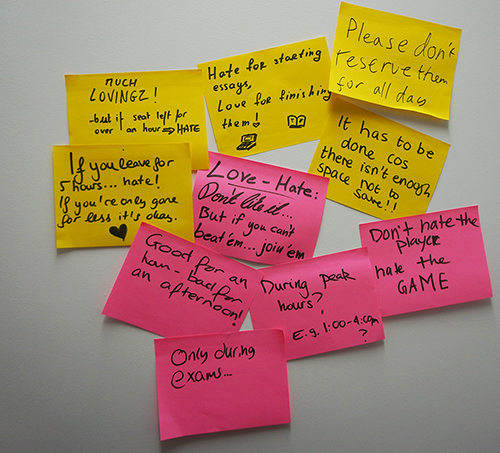 MUCH
LOVINGZ!
-but if seat left for
over an hour ⇒ HATE
Hate for starting
essays,
Love for finishing
them!
Please don't
reserve them
for all day
It has to be
done cos
there isn't enough
space not to
save!!
If you leave for
5 hours... hate!
If you're only gone
for less it's okay.
Love-Hate:
Don't like it...
But if you can't
beat'em... join'em
Good for an
hour - bad for
an afternoon!
During peak
hours?
E.g. 1:00-4:00pm
?
Don't hate the
player
hate the
GAME
Only during
exams...